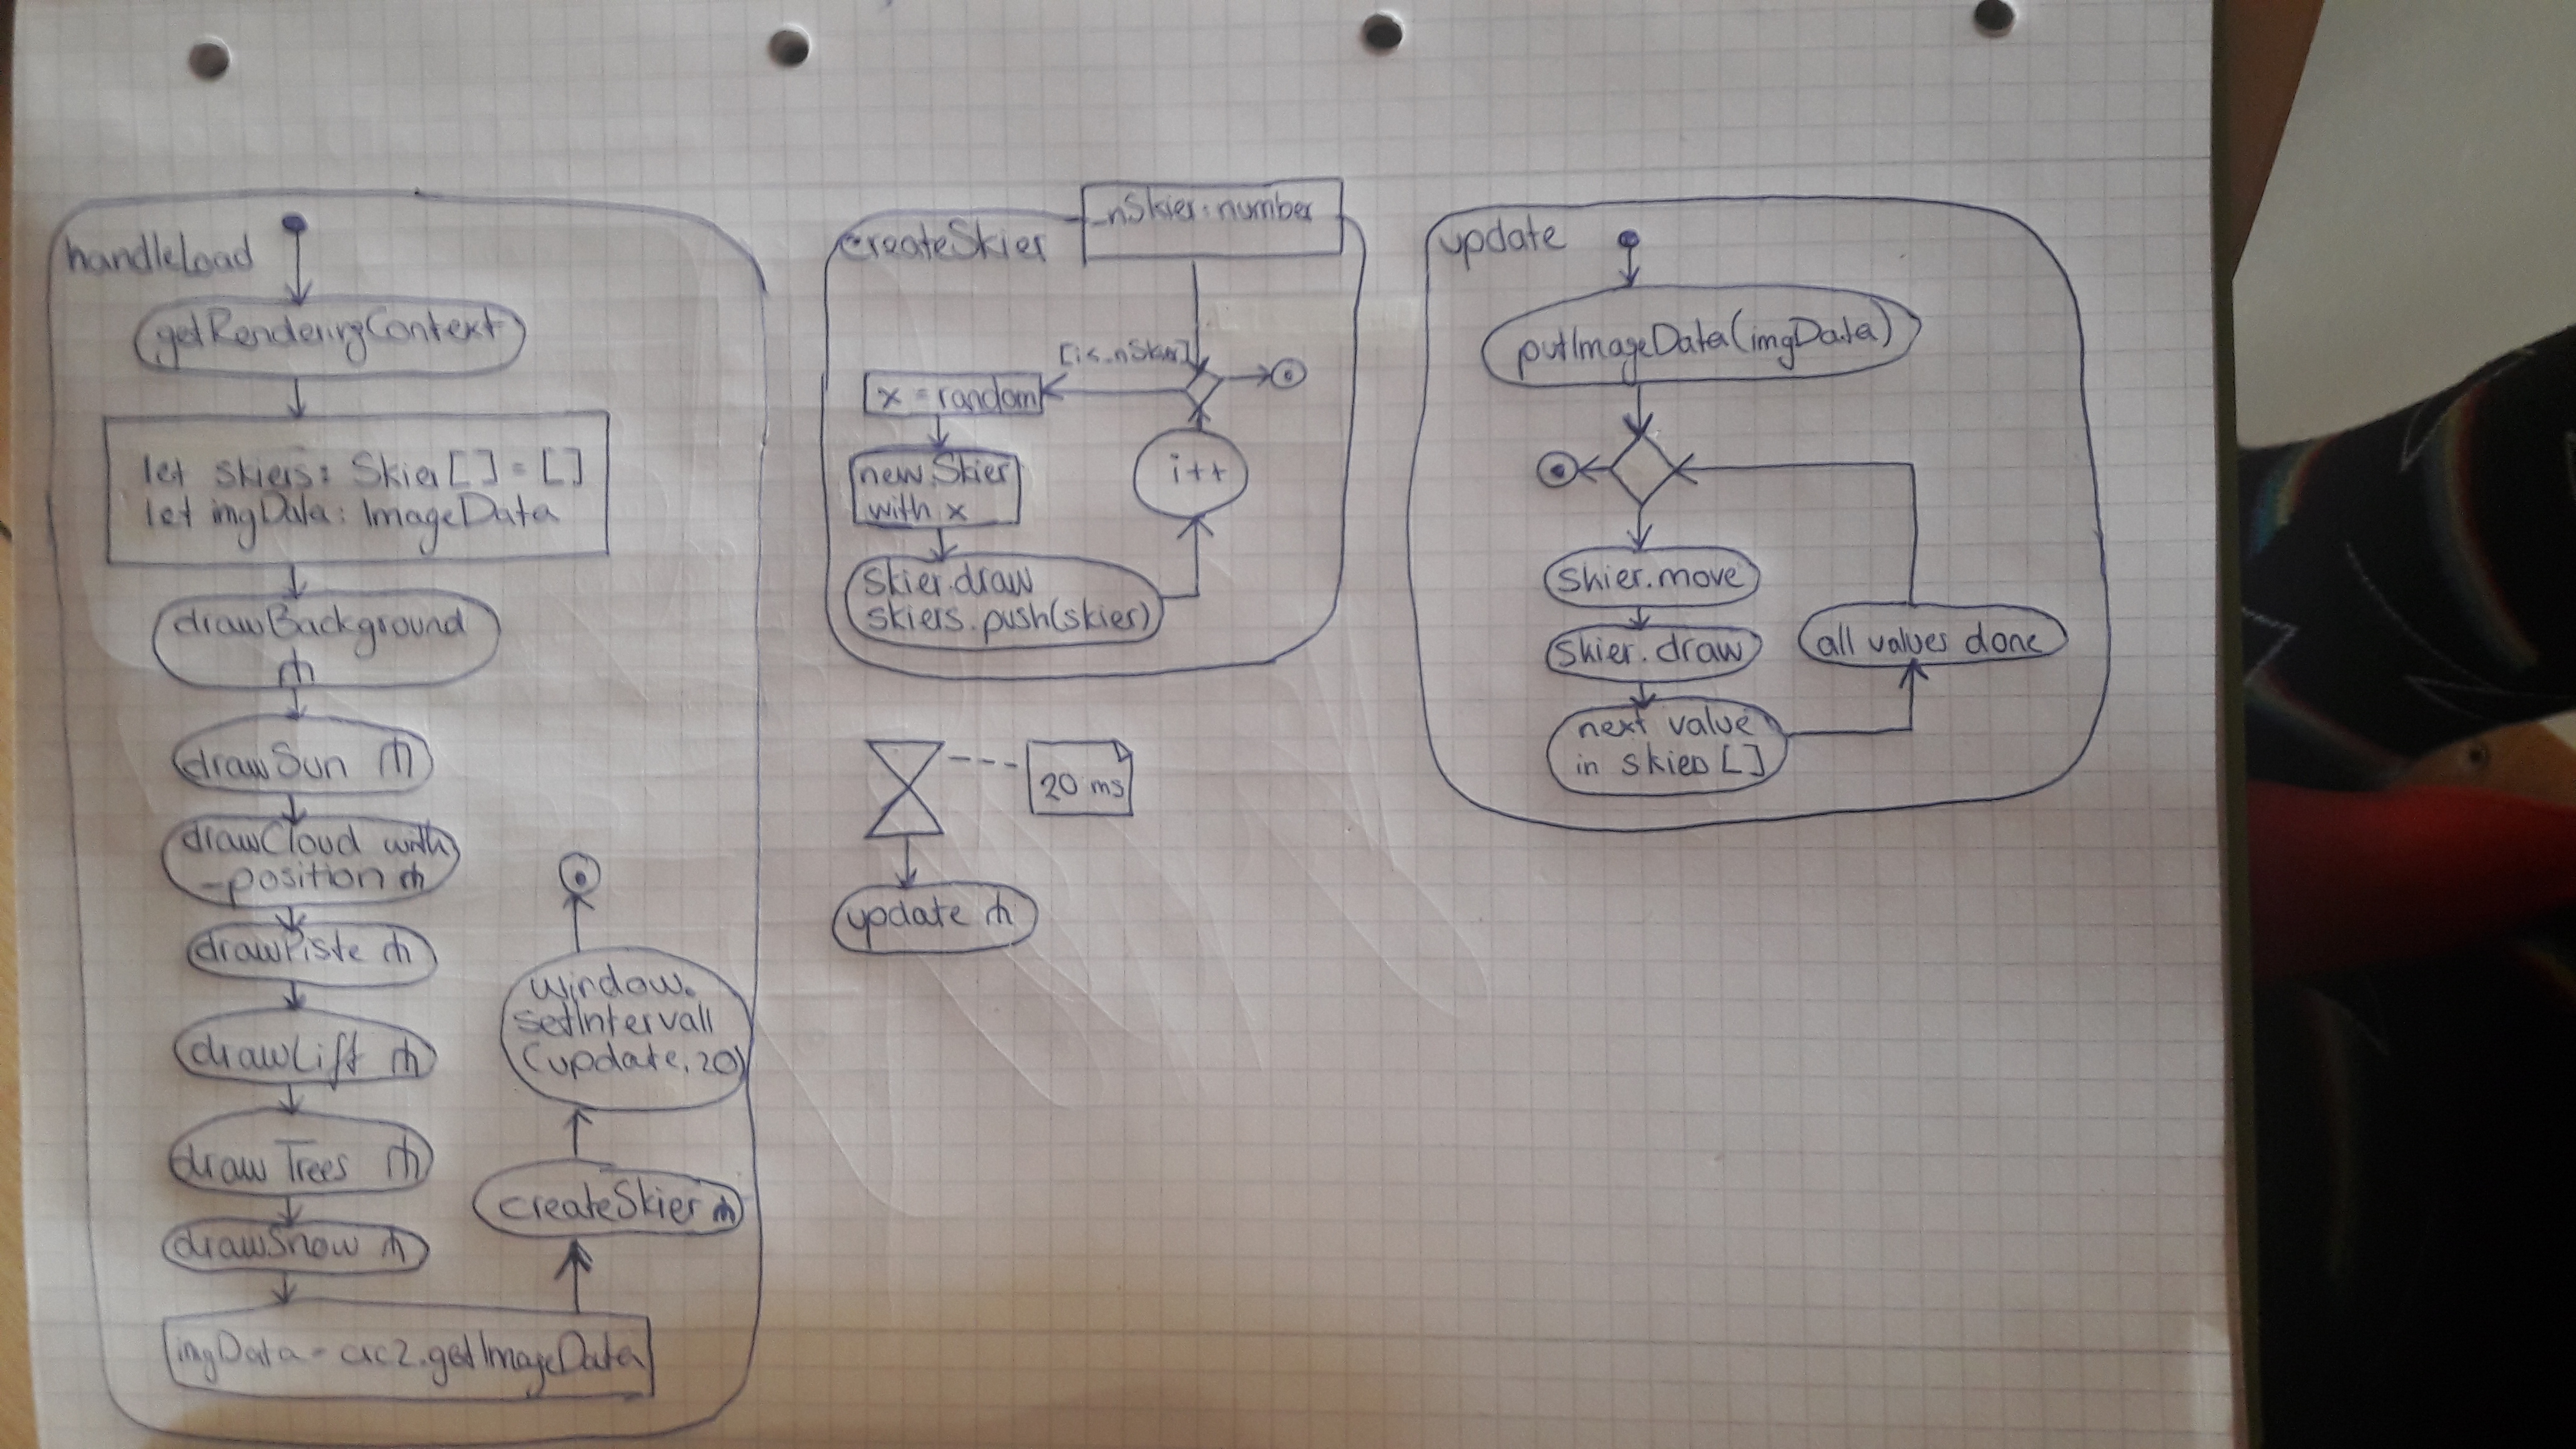 handleLoad
getRenderingContext
let skiers: Skier[] = []
let imgData: ImageData
drawBackground
drawSun
drawCloud with
-position
drawPiste
drawLift
drawTrees
drawSnow
imgData = crc2.getImageData
createSkier
window.
setIntervall
(update, 20)
createSkier
_nSkier: number
x = random
new Skier
with x
Skier.draw
skiers.push(skier)
i++
20 ms
update
update
putImageData(imgData)
Skier.move
Skier.draw
next value
in skier[]
all values done